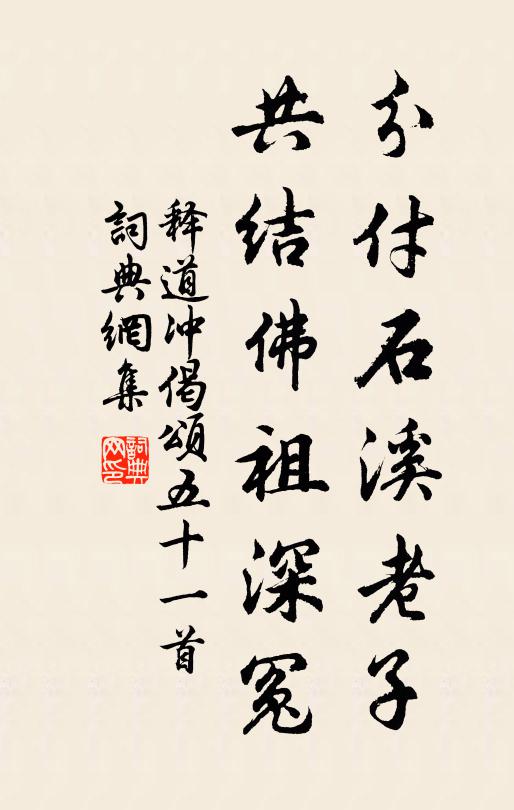 分付石溪老子
共结佛祖深冤
释道冲偈颂五十一首
詞典網集
詞典网印